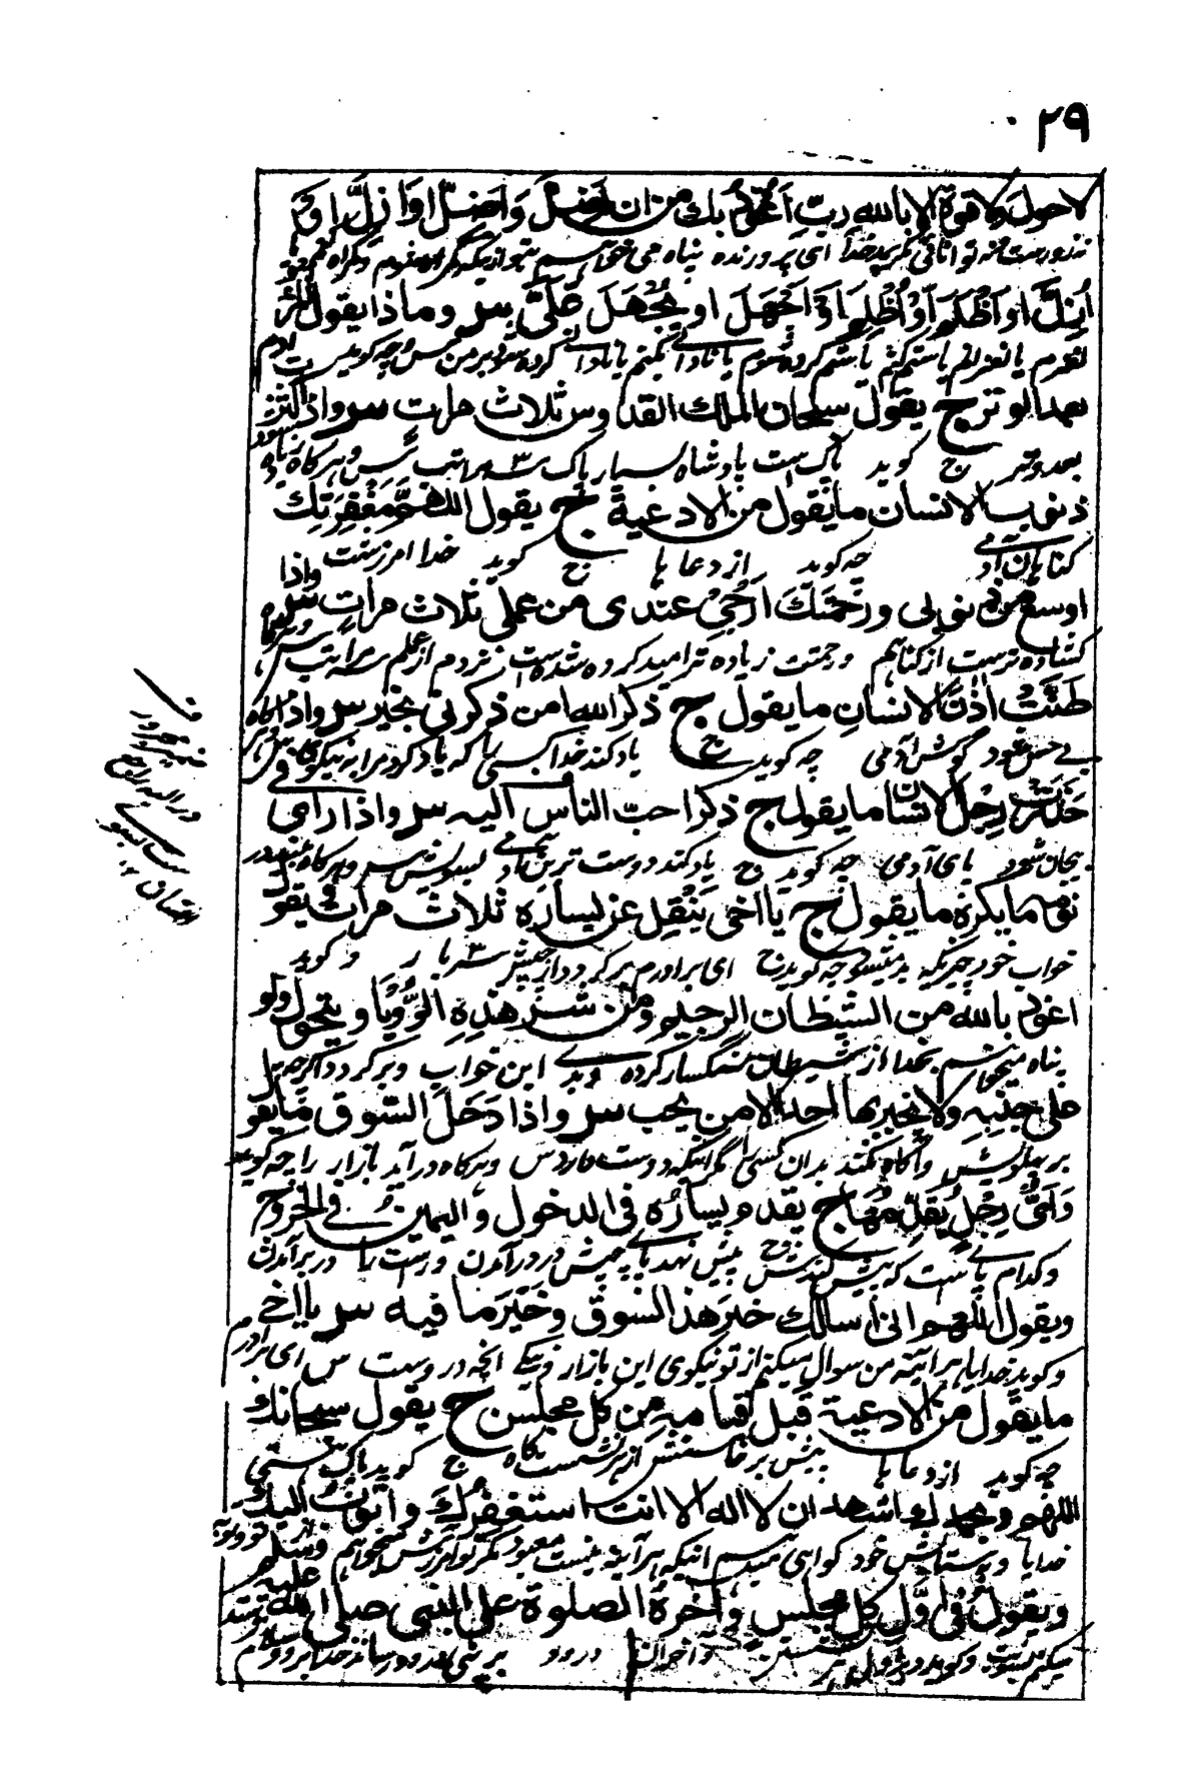 ٢٩
لا حول ولا قوة الا بالله رب اعوذ بك من ان اضل واضل او ازل او
نه زورست نه توانائی مگر بخدا ای پرورنده پناه می خواهم بتو از اینکه گمراه شوم
اُزِلَّ او اَظْلَم اَوْ اُظْلَم اَوْ اَجْهَلَ او يُجْهَلَ عَلَيَّ س وماذا يقول المرء
لغزم یا لغزانم یا ستم کنم یا ستم کرده شوم یا نادانی کنم یا نادانی کرده شود بر من س و چه گوید آدم
بعد الوتر ج يقول سبحان الملك القدوس ثلاث مرات س واذا كثر
بعد وتر ج گوید پاک است پادشاه بسیار پاک سه مراتب س و هرگاه زیاده شود
ذنوب الانسان ما يقول من الادعية ج يقول اللهم مَغْفِرَتِك
گناهان آدمی چه گوید از دعا ها ج گوید خدا آمرزشت
اوسع من ذنوبی ورَحْمَتَكَ اَرْجٰى عندی من عملی ثلاث مراتٍ س واذا
کشاده ترست از گناهم و رحمتت زیاده تر امید کرده شده است نزدم از عملم سه مراتب س
طَنَّتْ اُذُنَ الانسانِ ما يقول ج ذكر الله من ذكرنی بخير س واذا
بی حس شود گوش آدمی چه گوید ج یاد کند خدا کسی را که یاد کرد مرا به نیکوی س
خَدِرَتْ رِجْلُ الانسان ما يقول ج ذكر احبّ الناس اليه س واذا رای فی
بیجان شود پای آدمی چه گوید ج یاد کند دوست ترین آدمی بسویش س و هرگاه بیند در
نومه ما يكرهُ ما يقول ج يا اخی يَتْفِل عن يساره ثلاث مرات ويقول
خواب خود چیزیکه بد چه گوید ج ای برادرم سه بار و گوید
اعوذ بالله من الشيطان الرجيم ومن شر هٰذِهِ الرُّؤيَا ويتحول ولو
پناه میخواهم بخدا از شیطان سنگسار کرده و بدی این خواب و برگردد اگرچه
على جنبِهِ ولا يخبر بها احدا الا من يحب س واذا دَخَلَ السوق ما يقول
بر پهلویش و آگاه نکند بدان کسی را مگر آنکه دوست دارد س و هرگاه درآید بازار را چه گوید
وَاَىُّ رِجْلٍ يُقَدِّمُهَا ج يقدم يسارَهُ فی الدخول واليمين فی الخروج
و کدام پای است که پیش کندش ج پیش نهد پای چپش در درآمدن و راست را در برآمدن
ويقول اللهم انی اسالك خير هذا السوق وخَيْرَ ما فيه س يا اخی
و گوید خدایا هرآئینه من سوال میکنم از تو نیکوی این بازار و نیکی آنچه دروست س ای برادرم
ما يقول من الادعية قبل قيامه من كل مجلس ج يقول سبحانك
چه گوید از دعا ها پیش برخاستنش از هر نشست گاه ج گوید پاک هستی
اللهم وبحمدك اشهد ان لا اله الا انت استغفرك واتوب اليك
خدایا و بستایش خود گواهی میدهم اینکه هرآئینه نیست معبود مگر تو آمرزش میخواهم از تو
ويقول فی اوّلِ كل مجلسٍ وآخرِهِ الصلوة على النبی صلى الله عليه وسلم
میکنم بسویت و گوید در اول هر و آخر آن درود بر نبی